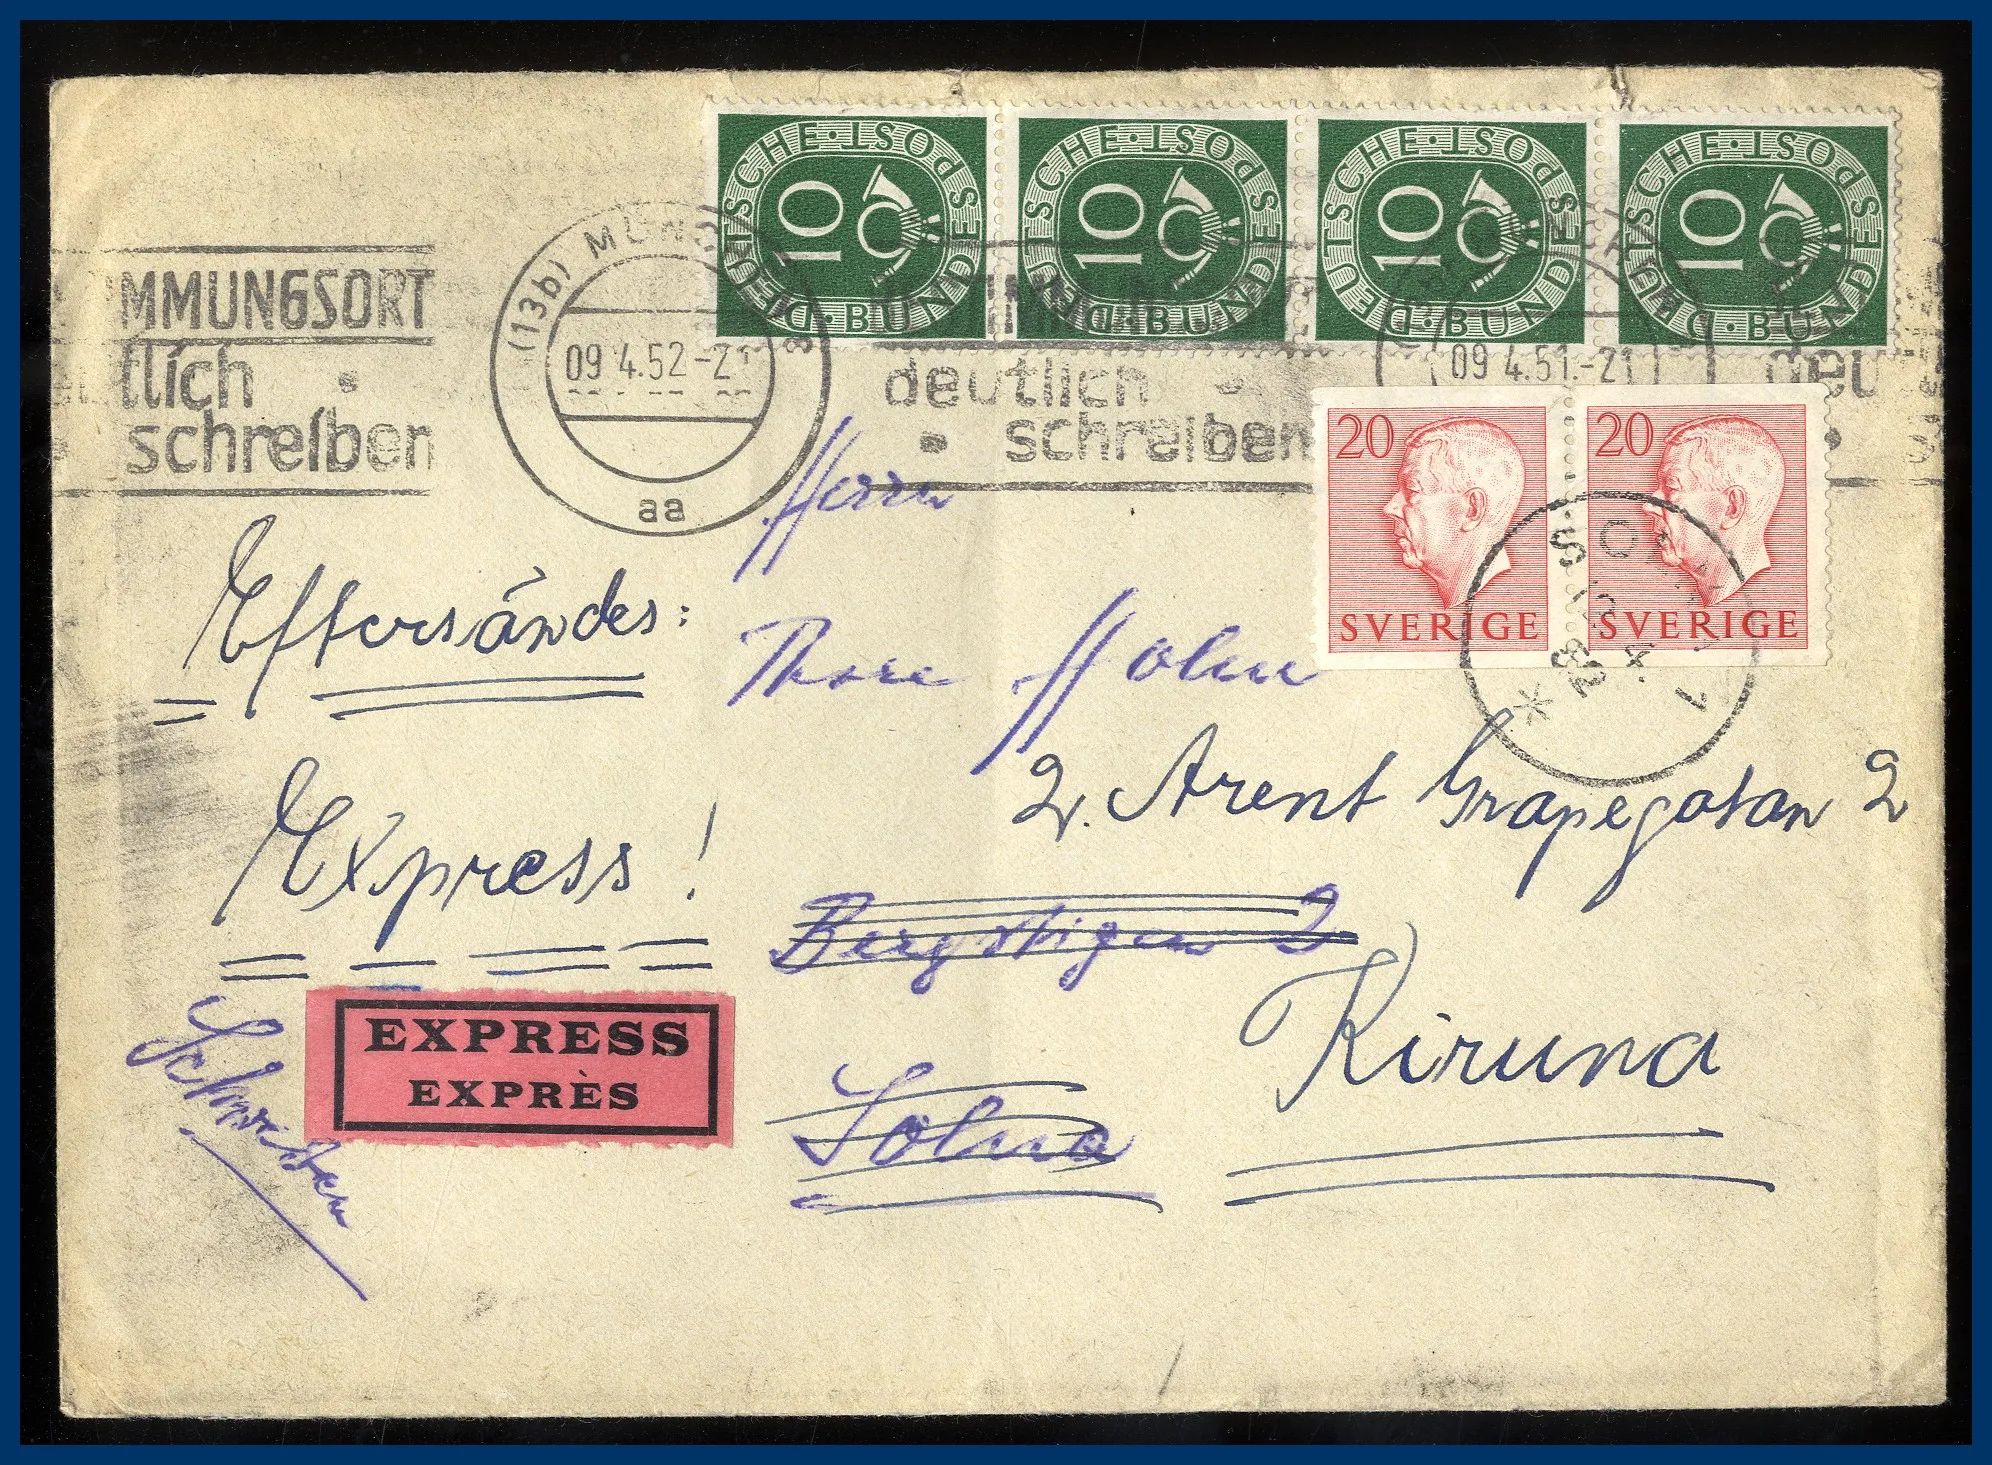 DEUTSCHE·BUNDESPOST 10
DEUTSCHE·BUNDESPOST 10
DEUTSCHE·BUNDESPOST 10
DEUTSCHE·BUNDESPOST 10
MMUNGSORT
tlich
schreiben
(13b) MÜNCH
09.4.52-21
aa
deutlich
schreiben
09.4.51.-21
deu
20 SVERIGE
20 SVERIGE
SOLNA 1
52
Herrn
Eftersändes:
Thore Holm
2. Arent Grapegatan 2
Express!
Bergstigen 2
Kiruna
EXPRESS
EXPRÈS
Solna
Schweden